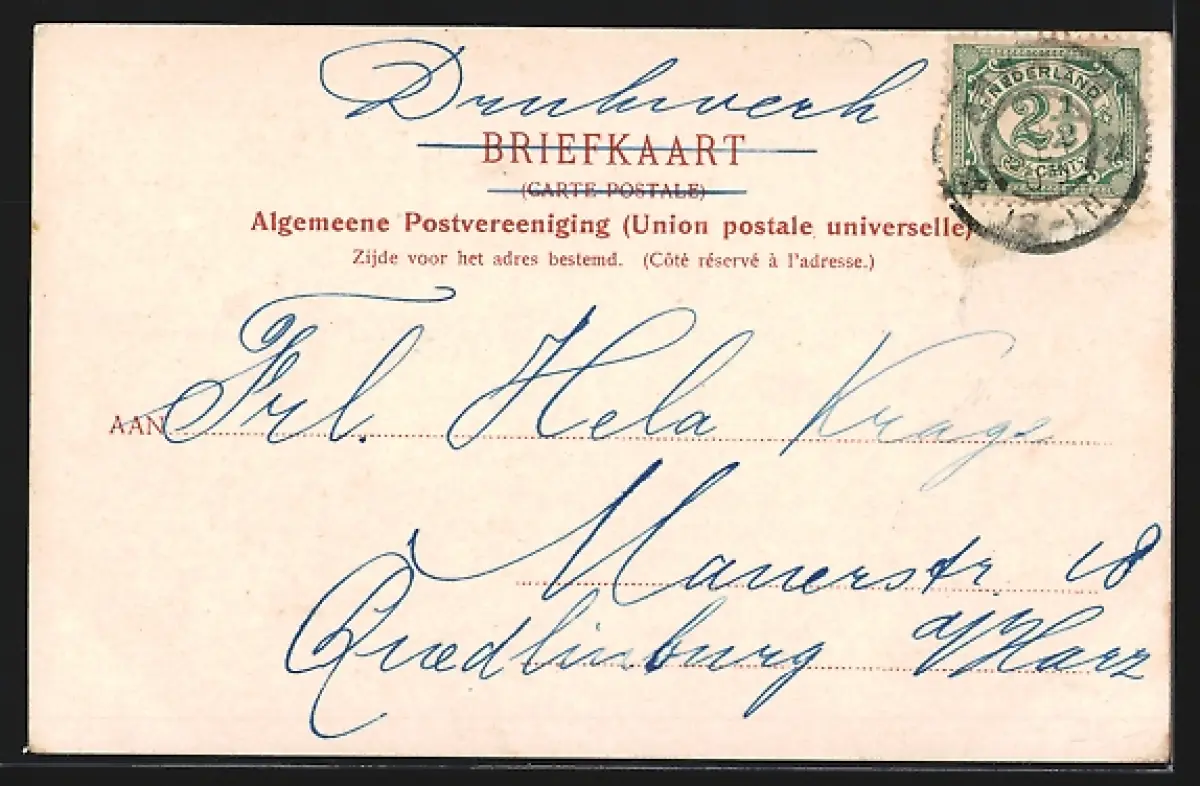 Drukwerk
BRIEFKAART
(CARTE POSTALE)
Algemeene Postvereeniging (Union postale universelle)
Zijde voor het adres bestemd. (Côté réservé à l'adresse.)
NEDERLAND
2½
2½ CENT
AAN Frl. Hela Krage
Mauerstr 18
Quedlinburg a/Harz